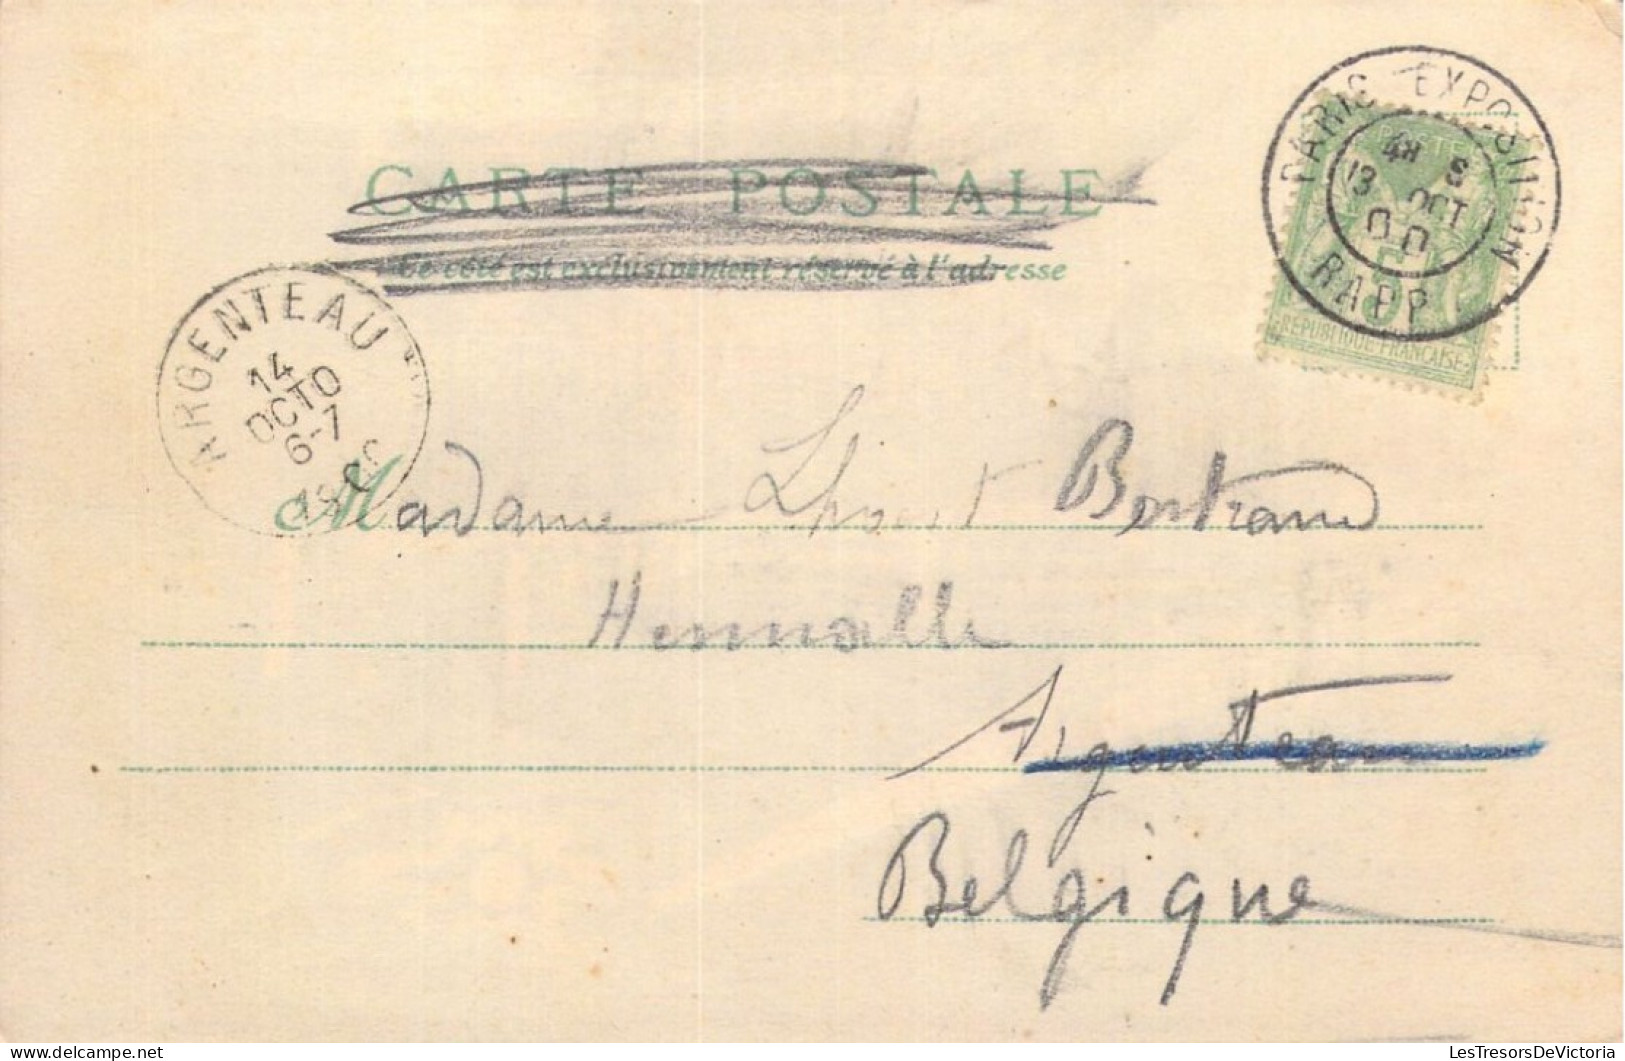 CARTE POSTALE
Ce côté est exclusivement réservé à l'adresse
PARIS EXPOSITION
13 OCT
00
RAPP
POSTE
5
RÉPUBLIQUE FRANÇAISE
ARGENTEAU
14
OCTO
6-7
Madame Lhoest Bertrand
Argenteau
Belgique
LesTresorsDeVictoria.com